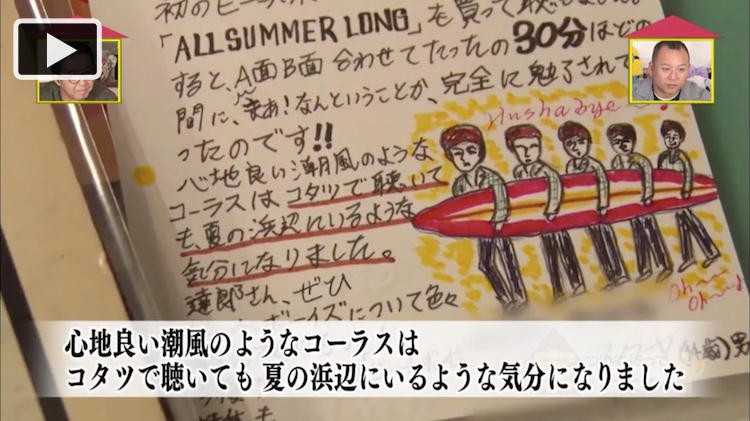 初のビー
「ALL SUMMER LONG」を買って聴
すると、A面B面 合わせてたったの30分ほどの
間に、まあ!なんということか、完全に魅了されて
ったのです!!
心地良い潮風のような
コーラスは コタツで聴いて
も、夏の浜辺にいるような
気分になりました。
達郎さん、ぜひ
ーイズについて色々
Hushabye
Oh
Oh
(14歳)男
心地良い潮風のようなコーラスは
コタツで聴いても 夏の浜辺にいるような気分になりました